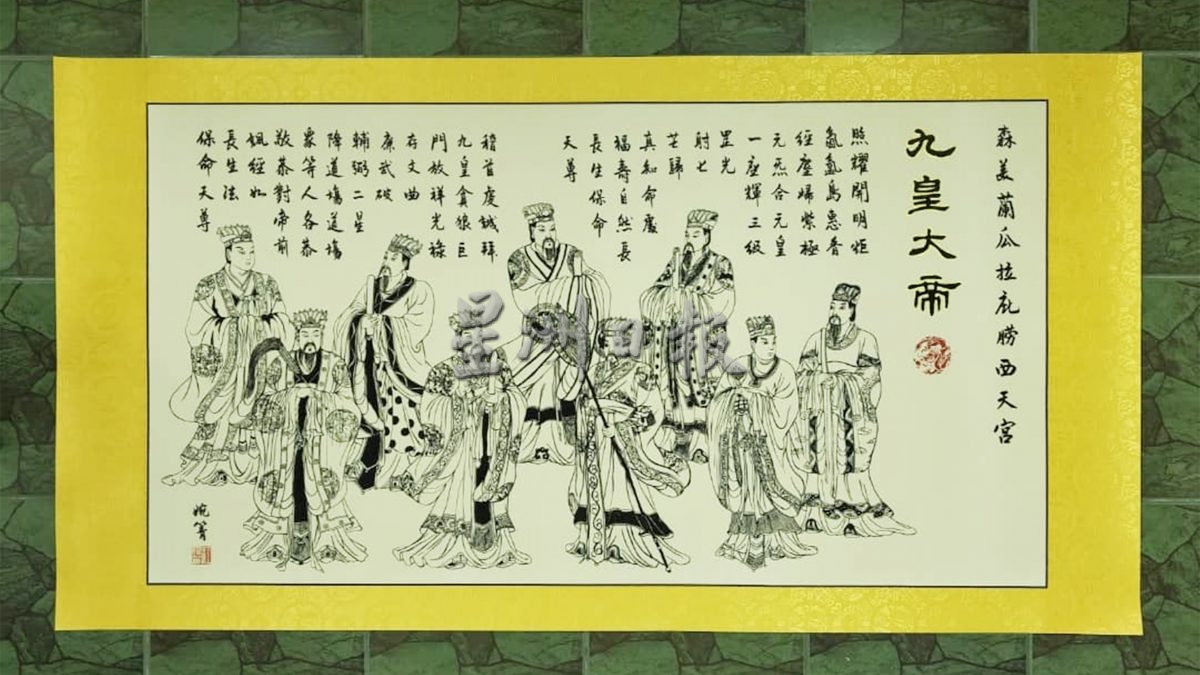 森美蘭瓜拉庇朥西天宮
九皇大帝
照耀開明炬
氤氳島惠香
經塵歸紫極
元炁合元皇
一座輝三級
罡光
射七
芒歸
真知命慶
福壽自然長
長生保命
天尊
稽首虔誠拜
九皇貪狼巨
門放祥光祿
存文曲
廉武破
輔弼二星
降道場道場
眾等人各恭
敬恭對帝前
諷經如
長生法
保命天尊
婉箐
星洲日報